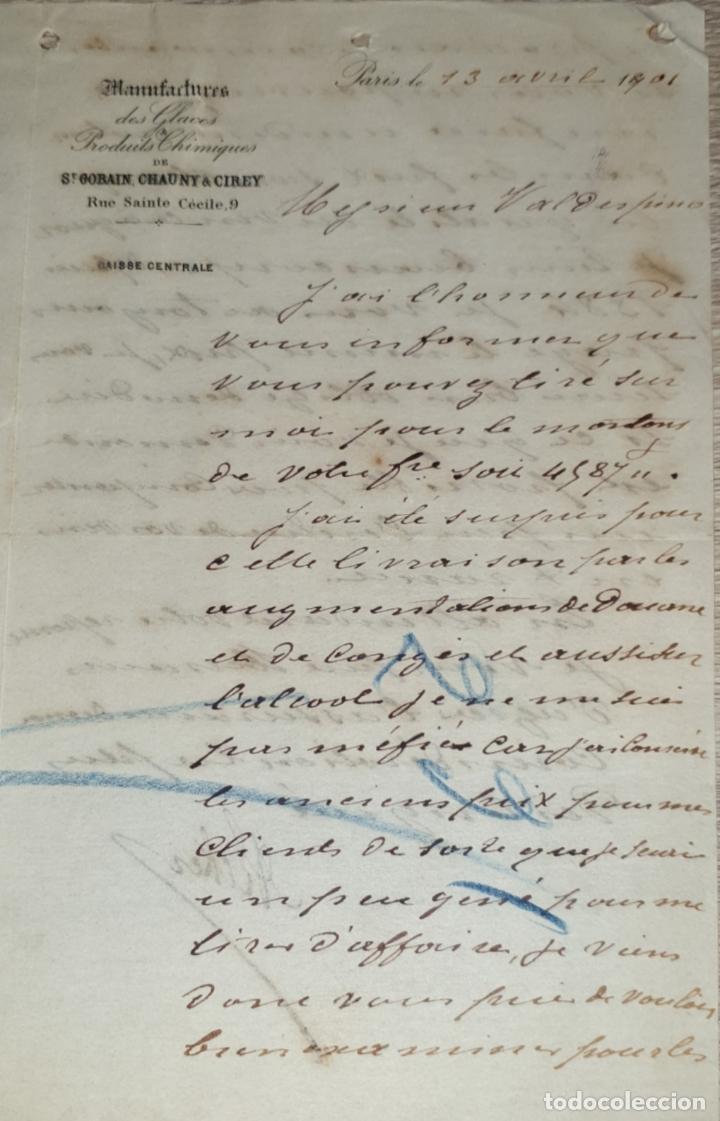 Manufactures
des Glaces
&
Produits Chimiques
DE
ST GOBAIN, CHAUNY & CIREY
Rue Sainte Cécile, 9
CAISSE CENTRALE
Paris le 13 avril 1901
Messieurs Valdespino
J'ai l'honneur de
vous informer que
vous pouvez tiré sur
moi pour le montans
de votre fre soit 4587 "
J'ai été surpris pour
cette livraison par les
augmentations de Douane
et de Congés et aussi sur
l'alcool je ne me suis
pas méfié car j'ai conservé
les anciens prix pour mes
Clients de sorte que je serai
un peu gené pour me
tirer d'affaire, je viens
donc vous prier de vouloir
bien examiner pour les
todocoleccion